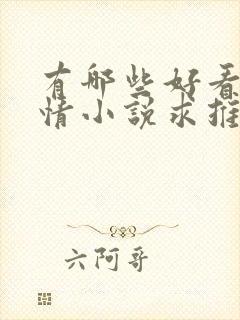 有那些好看
情小说求推
六阿哥